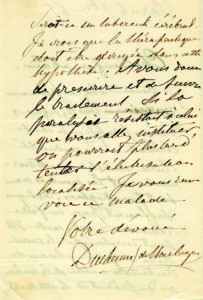 Serait-ce un tubercule cérébral
Je crois que la thérapeutique
doit être dirigée dans cette
hypothèse. A vous donc
de prescrire et de suivre
le traitement. Si la
paralysie résistait à celui
que vous allez instituer
on pourrait plus tard
tenter l'électrisation
localisée. Je vous ren
voie ce malade.
Votre dévoué
Duchenne de Boulogne